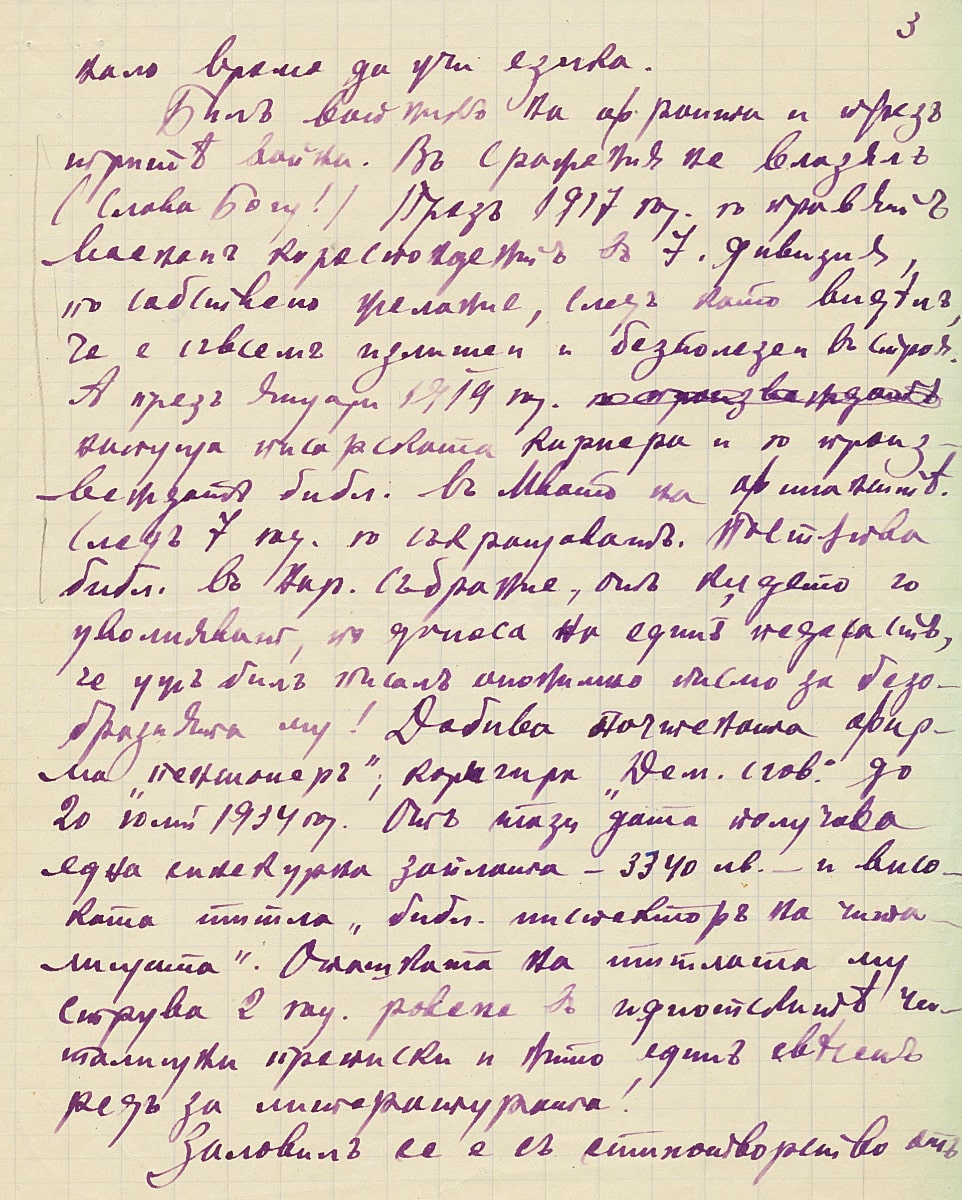 3
мало време да учи езика.
Билъ войникъ на фронта и презъ
тритѣ войни. Въ сражения не влязялъ
(Слава Богу!) Презъ 1917 год. го правятъ
военен кореспондентъ въ 7. дивизия,
по собствено желание, следъ като видѣли,
че е съвсемъ излишен и безполезен въ строя.
А презъ Януари 1919 год.
напуща писарската кариера и го произ-
веждатъ библ. въ М-вото на финанситѣ.
Следъ 7 год. го съкращаватъ. Постѫпва
библ. въ Нар. събрание, отъ кѫдето го
уволняват, по доноса на единъ педерастъ,
че ужъ билъ писалъ анонимно писмо за безо-
бразията му! Добива почтената фир-
ма „пенсионеръ“; коригира „Дем. сгов.“ до
20 юлий 1934 год. Отъ тази дата получава
една синекурна заплата – 3340 лв. – и висо-
ката титла „библ. инспекторъ на чита-
лищата“. Опашката на титлата му
струва 2 год. ровене въ идиотскитѣ чи-
талищни преписки и нито единъ свѣтелъ
редъ за литературата!
Заловилъ се е съ стихотворство отъ